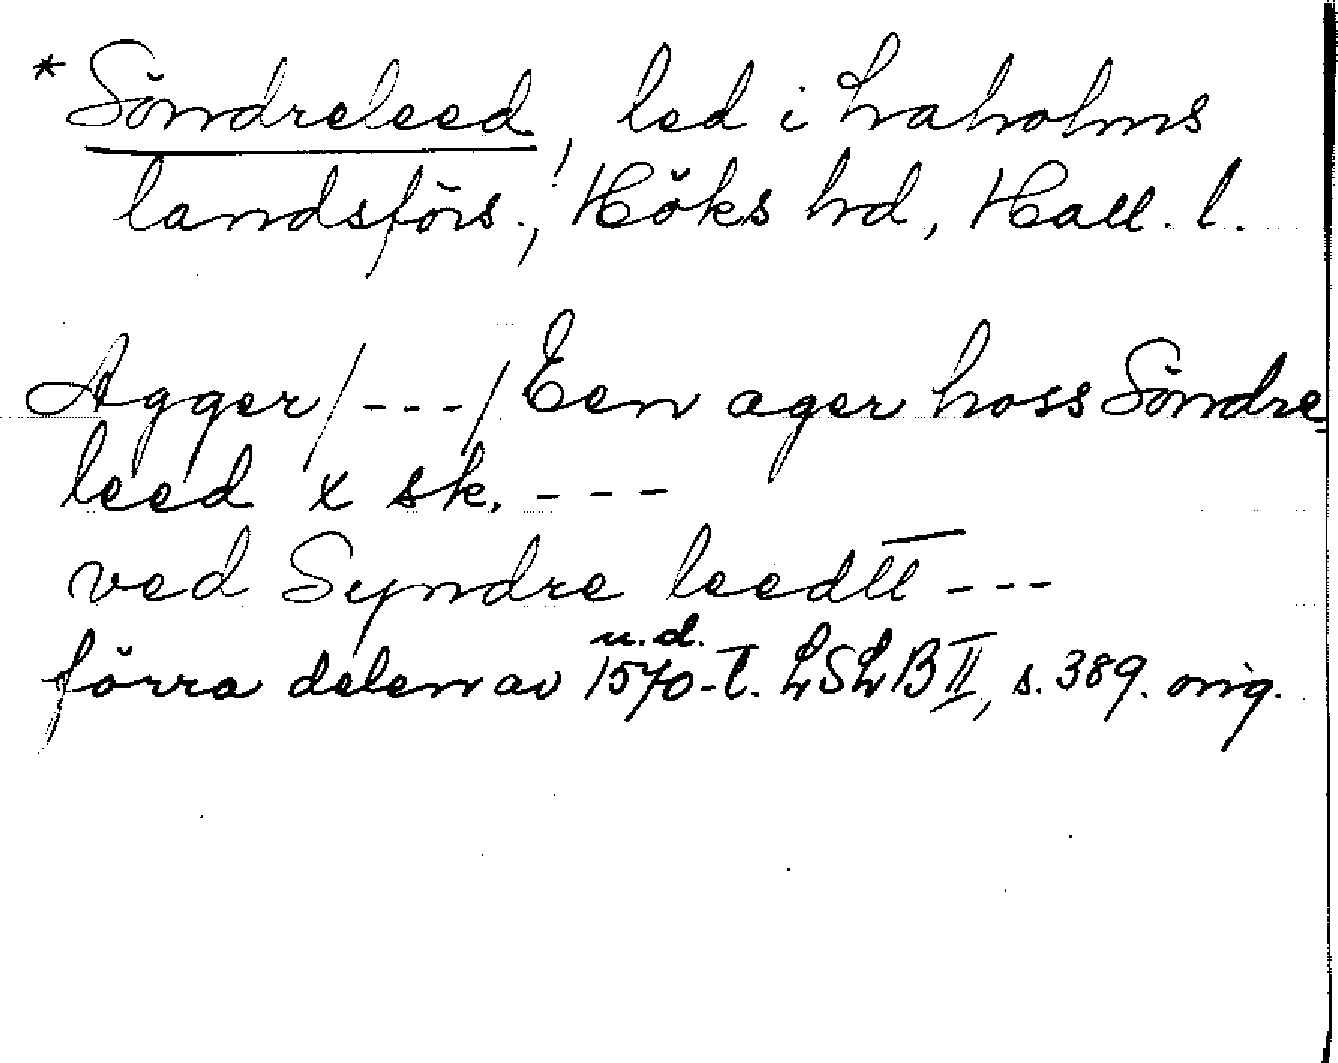 * Söndreleed, led i Laholms
landsförs., Höks hd, Hall. l.
Agger /---/ Een ager hoss Söndre
leed x sk. ---
ved Syndre leedtt ---
u.d.
förra delen av 1570-t. LSLB II, s. 389. orig.